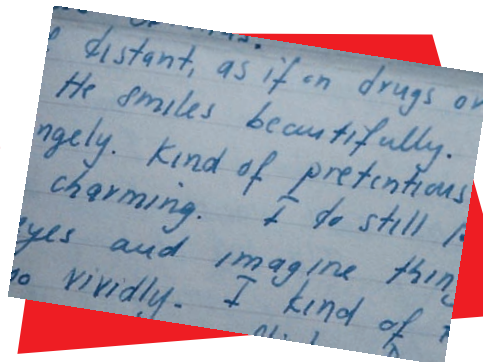 distant, as if on drugs or
He smiles beautifully.
ngely. Kind of pretentious
charming. I do still
eyes and imagine thin
so vividly. I kind of